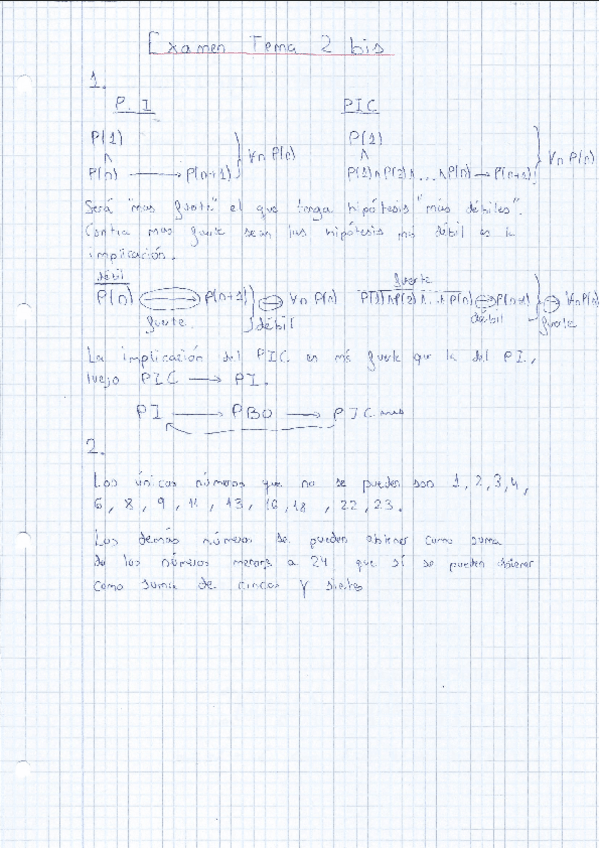 Examen Tema 2 bis
1.
P. I
PIC
P(1)
∧
P(n) → P(n+1) } ∀n P(n)
P(1)
∧
P(1)∧P(2)∧...∧P(n) → P(n+1) } ∀n P(n)
Será "mas fuerte" el que tenga hipótesis "más débiles".
Contra mas fuerte sean las hipótesis más débil es la
implicación.
débil
P(n) → P(n+1) } → ∀n P(n)
fuerte débil
fuerte
P(1)∧P(2)∧...∧P(n) → P(n+1) } → ∀n P(n)
débil fuerte
La implicación del PIC es más fuerte que la del PI,
luego PIC → PI.
PI → PBO → PIC
2.
Los únicos números que no se pueden son 1, 2, 3, 4,
6, 8, 9, 11, 13, 16, 18, 22, 23.
Los demás números se pueden obtener como suma
de los números menores a 24 que sí se pueden obtener
como suma de cincos y sietes